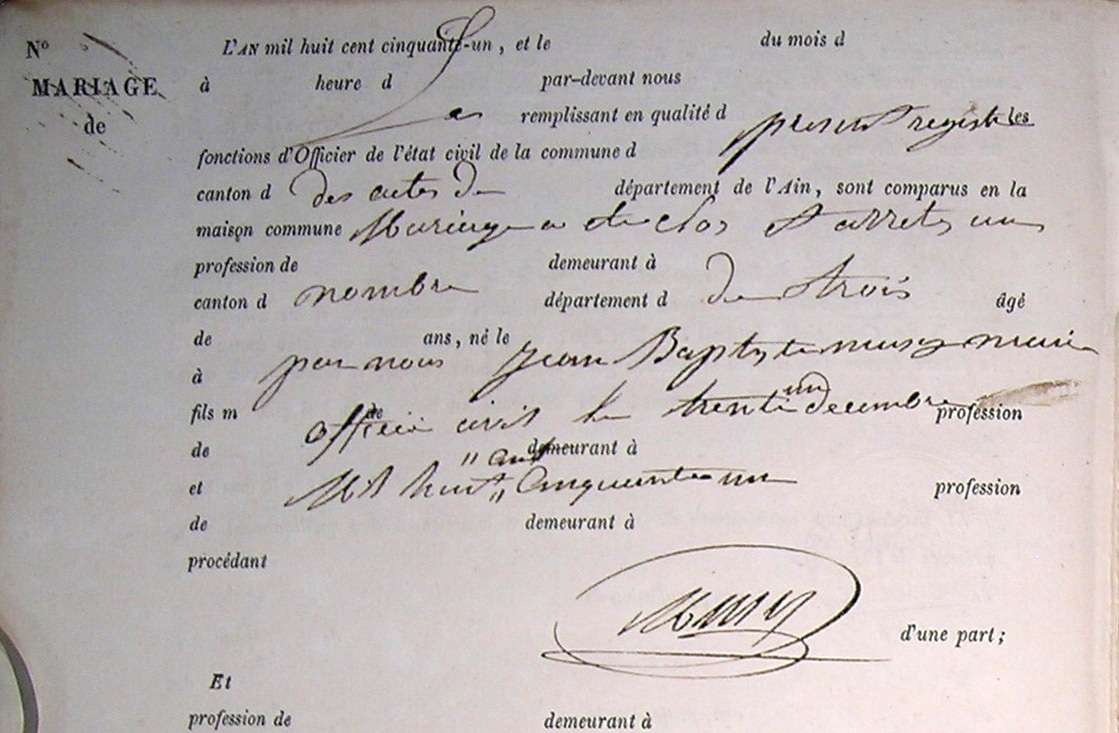 N° L'AN mil huit cent cinquante-un, et le du mois d
MARIAGE à heure d par-devant nous
de Le remplissant en qualité d présent registre les
fonctions d'Officier de l'état civil de la commune d
canton d des actes de département de l'Ain, sont comparus en la
maison commune Mariage a été clos & arrêté au
profession de demeurant à
canton d nombre département d de trois âgé
de ans, né le
à par nous Jean Baptyste musy maire
fils m de officier civil le trente un decembre profession
de demeurant à
et Mil huit " cent " Cinquante un profession
de demeurant à
procédant
Musy
d'une part;
Et
profession de demeurant à